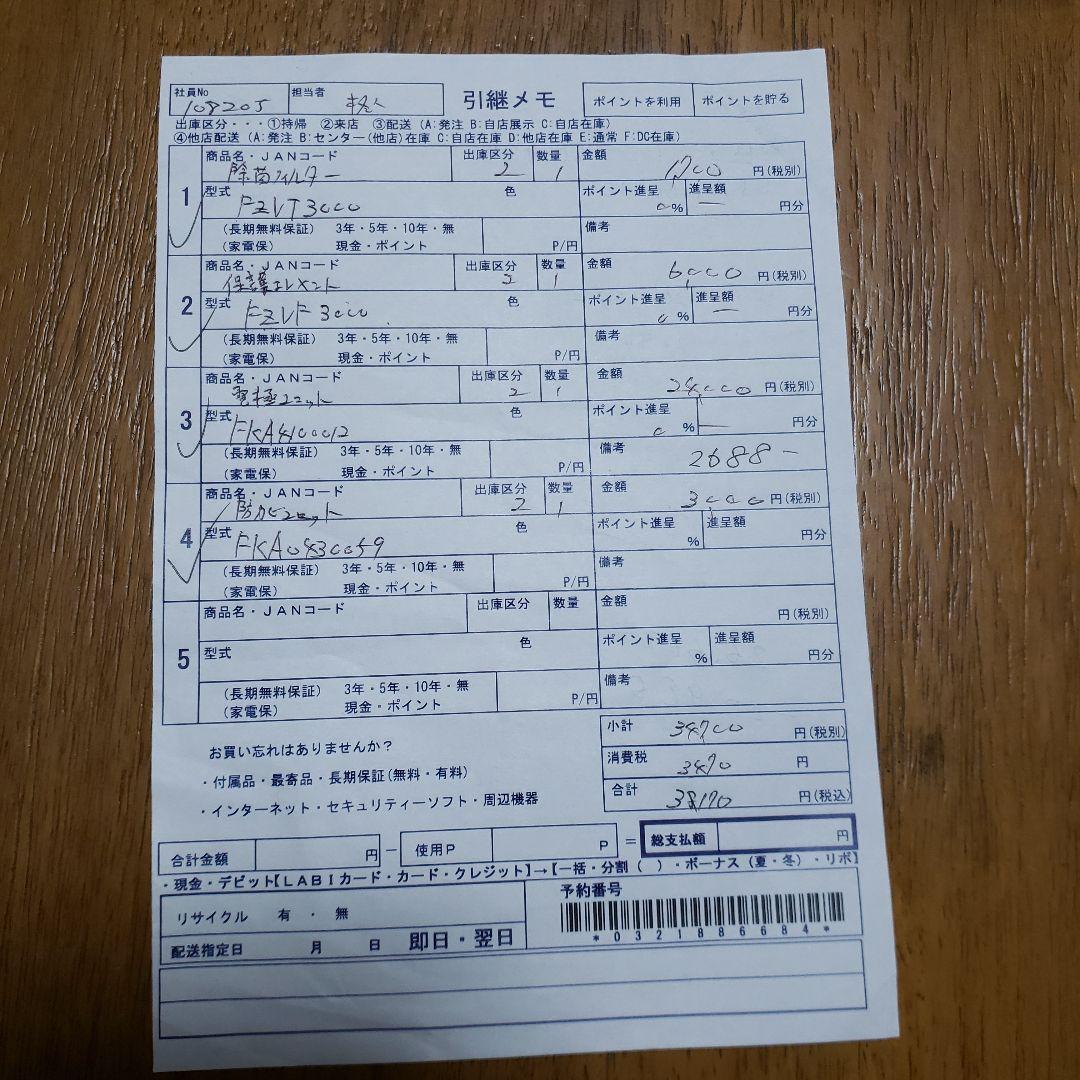 社員No 108205 担当者 引継メモ ポイントを利用 ポイントを貯る
出庫区分・・・①持帰 ②来店 ③配送（A:発注 B:自店展示 C:自店在庫）
④他店配送（A:発注 B:センター(他店)在庫 C:自店在庫 D:他店在庫 E:通常 F:DC在庫）
1 商品名・JANコード 除菌フィルター 出庫区分 2 数量 1 金額 1700 円(税別)
型式 FZVT3000 色 ポイント進呈 0% 進呈額 — 円分
（長期無料保証） 3年・5年・10年・無 備考
（家電保） 現金・ポイント P/円
2 商品名・JANコード 保護エレメント 出庫区分 2 数量 1 金額 6000 円(税別)
型式 FZVF3000 色 ポイント進呈 0% 進呈額 — 円分
（長期無料保証） 3年・5年・10年・無 備考
（家電保） 現金・ポイント P/円
3 商品名・JANコード 電極ユニット 出庫区分 2 数量 1 金額 24000 円(税別)
型式 FKA4100012 色 ポイント進呈 0 % — 円分
（長期無料保証） 3年・5年・10年・無 備考 2688-
（家電保） 現金・ポイント P/円
4 商品名・JANコード 防カビユニット 出庫区分 2 数量 1 金額 3000 円(税別)
型式 FKA0430059 色 ポイント進呈 % 進呈額 円分
（長期無料保証） 3年・5年・10年・無 備考
（家電保） 現金・ポイント P/円
5 商品名・JANコード 出庫区分 数量 金額 円(税別)
型式 色 ポイント進呈 % 進呈額 円分
（長期無料保証） 3年・5年・10年・無 備考
（家電保） 現金・ポイント P/円
小計 34700 円(税別)
お買い忘れはありませんか？
消費税 3470 円
・付属品・最寄品・長期保証(無料・有料)
合計 38170 円(税込)
・インターネット・セキュリティーソフト・周辺機器
合計金額 円 − 使用P P = 総支払額 円
・現金・デビット【LABIカード・カード・クレジット】→【一括・分割（ ）・ボーナス（夏・冬）・リボ】
リサイクル 有 ・ 無 予約番号
配送指定日 月 日 即日・翌日 *0321886684*